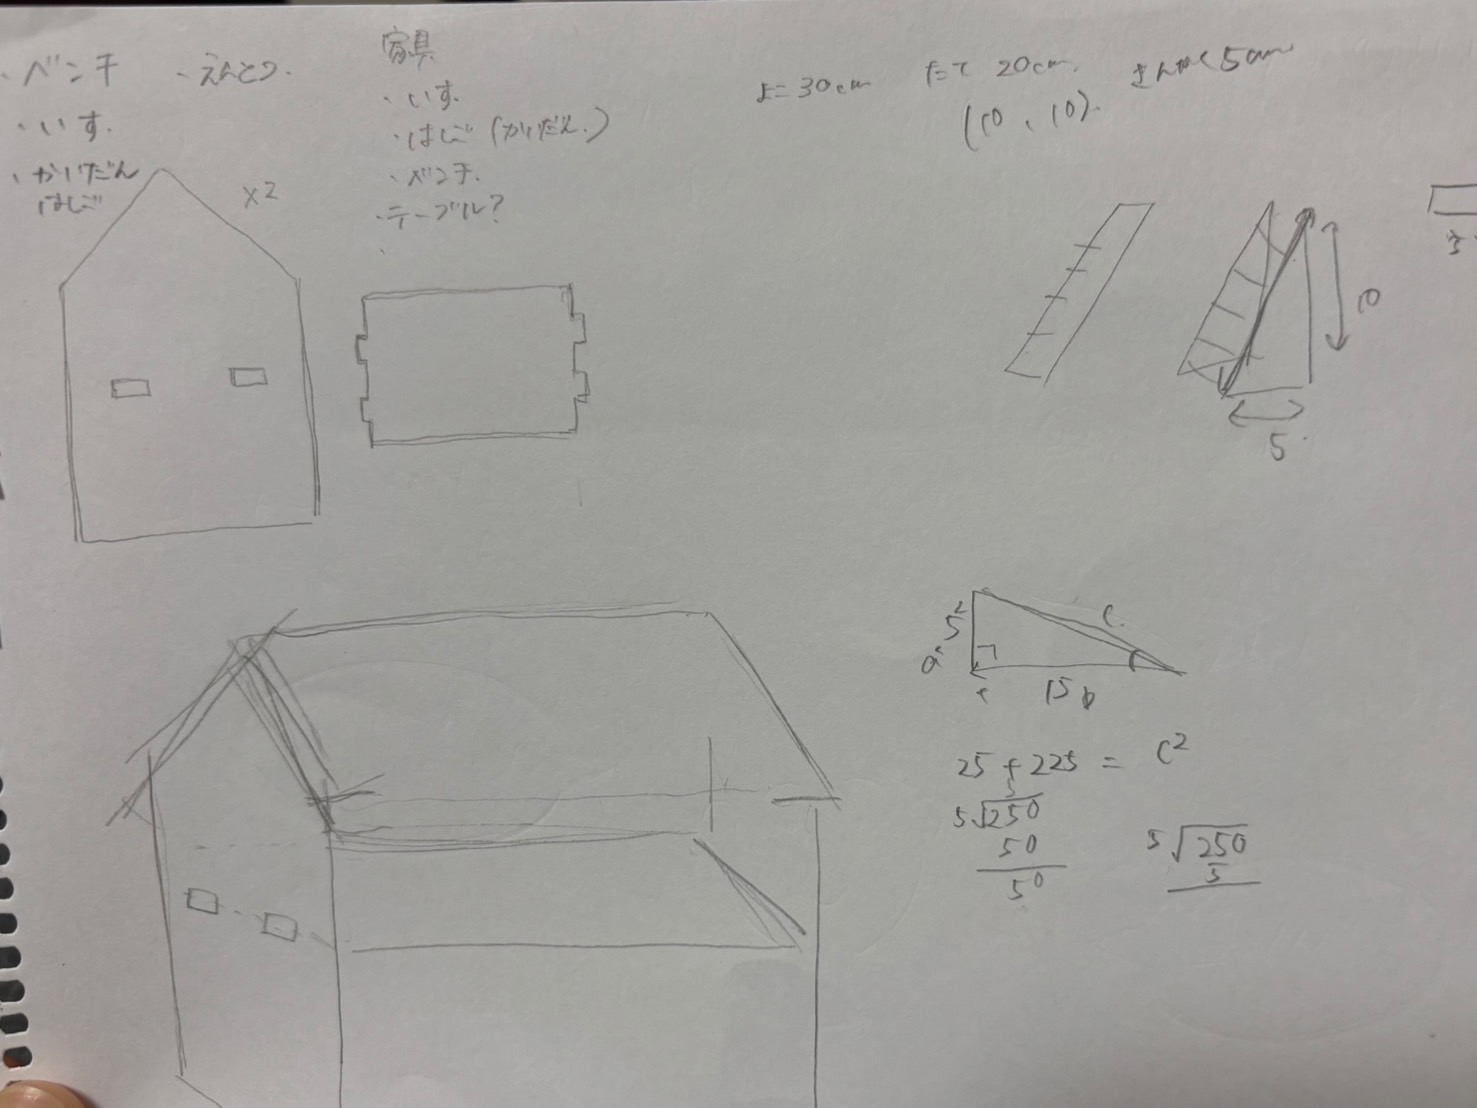 ・ベンチ
・えんとつ.
・いす.
・かいだん
はしご
家具
・いす.
・はしご(かいだん.)
・ベンチ.
・テーブル?
よこ30cm
たて 20cm.
(10, 10).
さんかく5cm
×2
10
5
5²
a²
c.
15 b
25 + 225 = c²
5
5√250
50
50
5√250
5